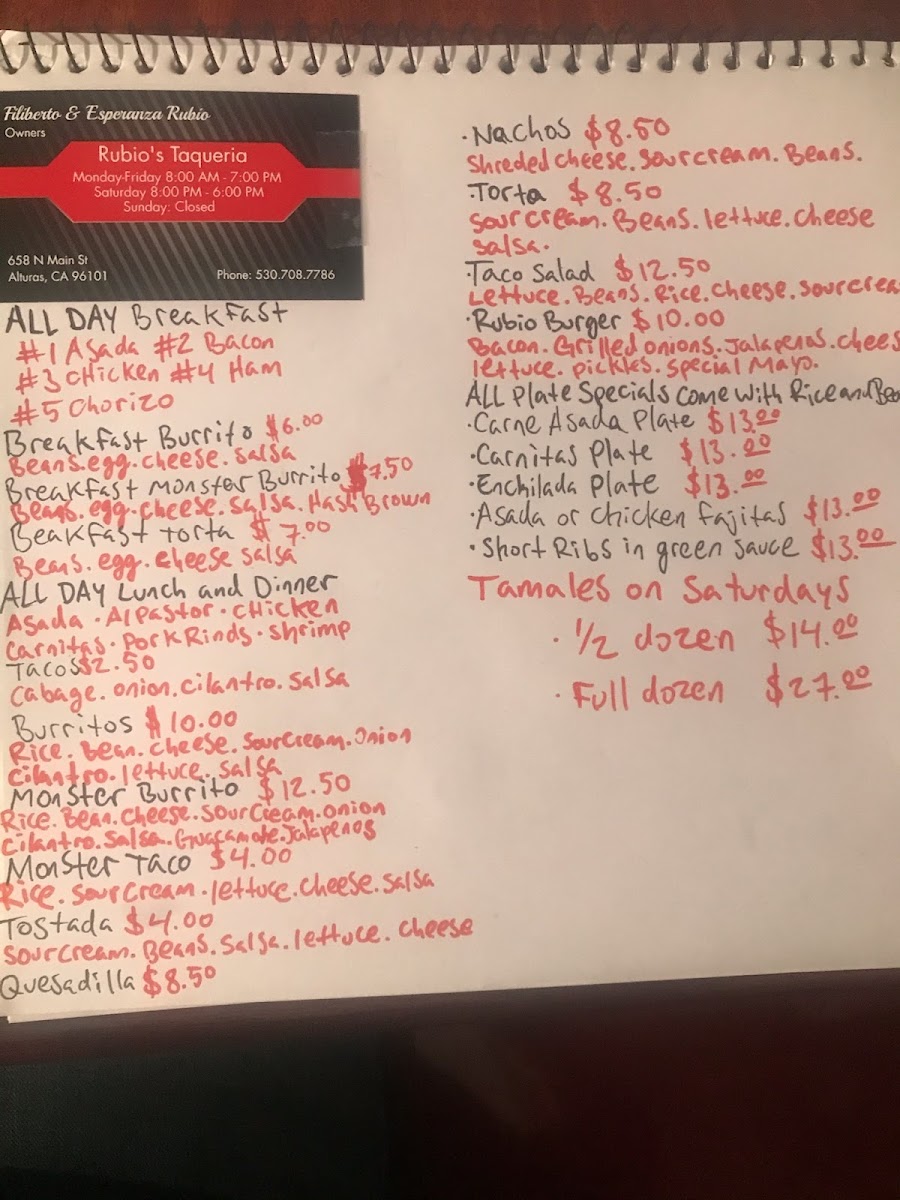 Filiberto & Esperanza Rubio
Owners
Rubio's Taqueria
Monday-Friday 8:00 AM - 7:00 PM
Saturday 8:00 PM - 6:00 PM
Sunday: Closed
658 N Main St
Alturas, CA 96101
Phone: 530.708.7786
ALL DAY BreakFast
#1 Asada #2 Bacon
#3 CHicken #4 Ham
#5 Chorizo
Breakfast Burrito $6.00
Beans.egg.cheese.salsa
Breakfast Monster Burrito $7.50
Beans.egg.cheese.salsa.Hash Brown
Beakfast torta $7.00
Beans.egg.cheese salsa
ALL DAY Lunch and Dinner
Asada · Alpastor · CHicken
Carnitas · Pork Rinds · Shrimp
Tacos $2.50
Cabage.onion.cilantro.salsa
Burritos $10.00
Rice.Bean.cheese.sourcream.onion
cilantro.lettuce.salsa
Monster Burrito $12.50
Rice.Bean.cheese.sourcream.onion
cilantro.salsa.Guacamole.Jalapenos
Monster Taco $4.00
Rice.sourcream.lettuce.cheese.salsa
Tostada $4.00
sourcream.Beans.salsa.lettuce.cheese
Quesadilla $8.50
·Nachos $8.50
Shreded cheese.sourcream.Beans.
·Torta $8.50
sourcream.Beans.lettuce.cheese
salsa.
·Taco Salad $12.50
Lettuce.Beans.Rice.cheese.sourcrea
·Rubio Burger $10.00
Bacon.Grilled onions.Jalapenos.chees
lettuce.pickles.special Mayo.
ALL Plate Specials come with Rice and Bea
·Carne Asada Plate $13.00
·Carnitas Plate $13.00
·Enchilada Plate $13.00
·Asada or chicken fajitas $13.00
·Short Ribs in green sauce $13.00
Tamales on Saturdays
· 1/2 dozen $14.00
· Full dozen $27.00